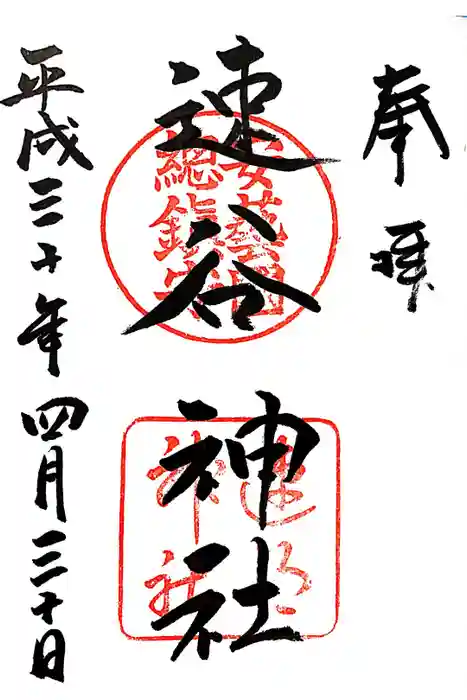 奉拝
速谷神社
安藝國
總鎮守
速谷
神社
平成三十年四月三十日